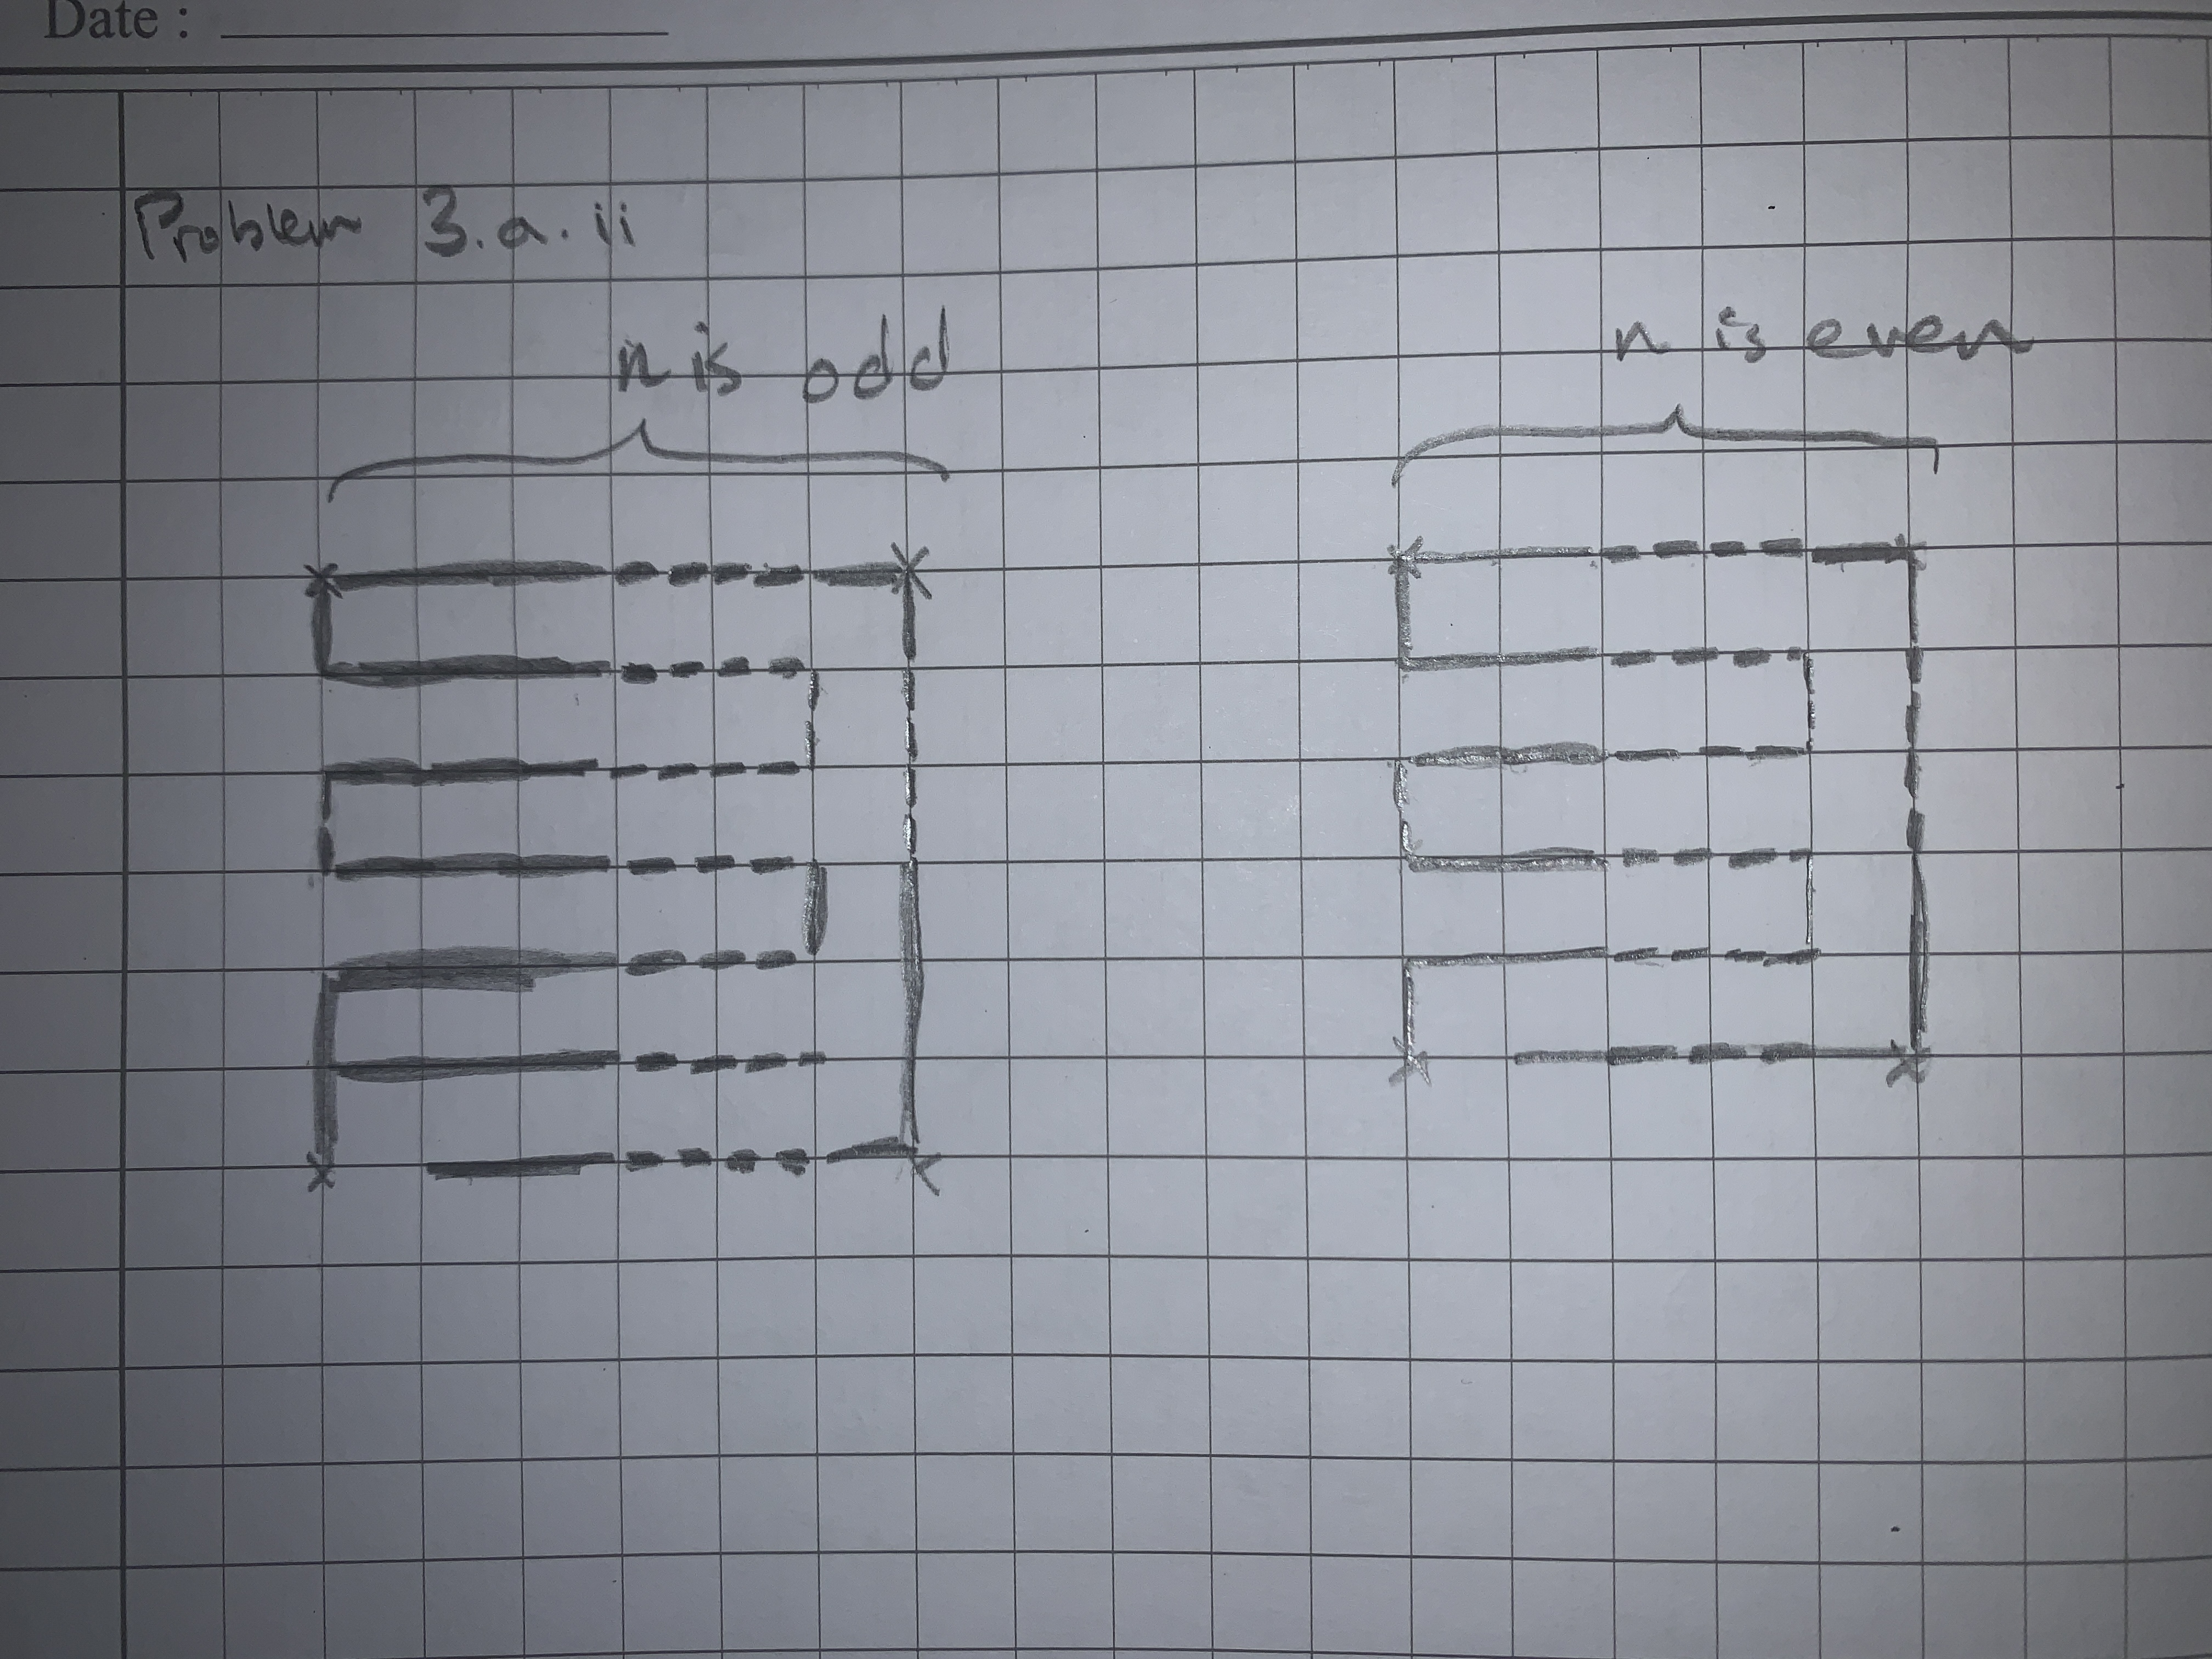 Date :
Problem 3.a.ii
n is odd
n is even